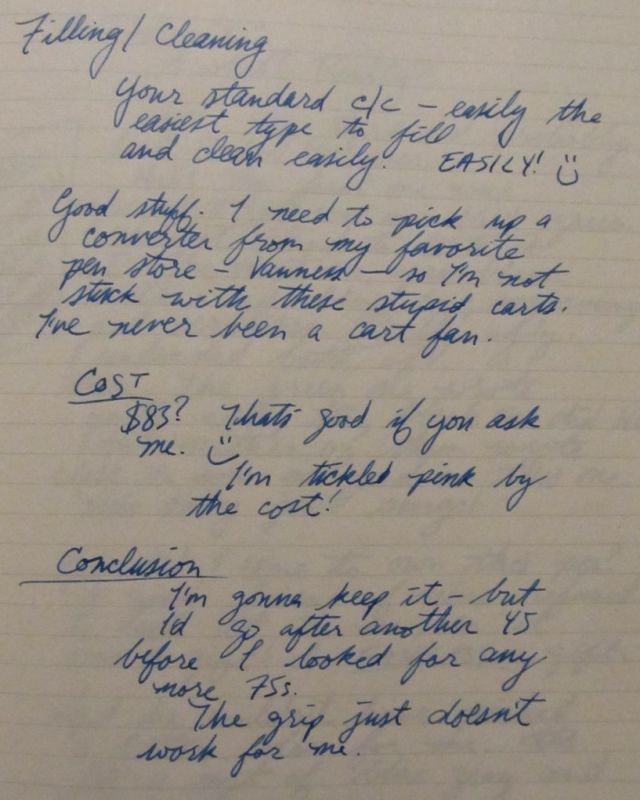 Filling/Cleaning
Your standard c/c – easily the
easiest type to fill
and clean easily. EASILY! :)
Good stuff. I need to pick up a
converter from my favorite
pen store – Vanness – so I'm not
stuck with these stupid carts.
I've never been a cart fan.
COST
$83? That's good if you ask
me. :)
I'm tickled pink by
the cost!
Conclusion
I'm gonna keep it – but
I'd go after another 45
before I looked for any
more 75s.
The grip just doesn't
work for me.